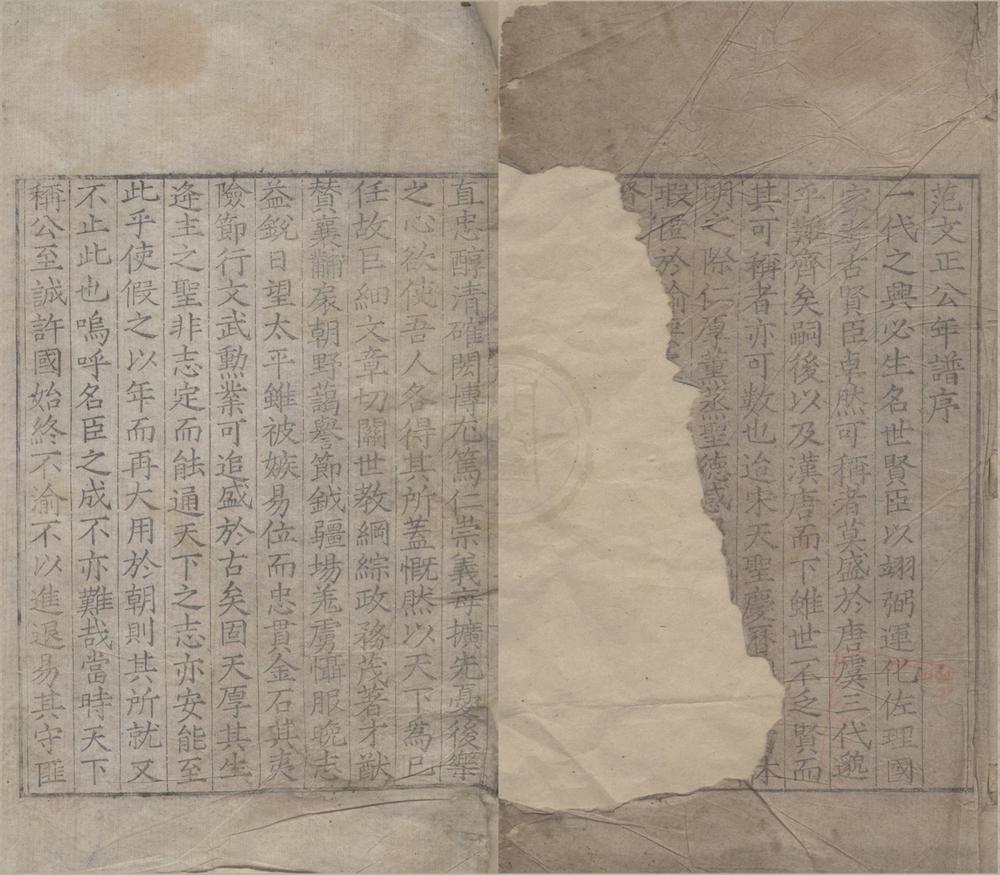 范文正公年譜序
一代之興必生名世賢臣以翊弼運化佐理國
家考古賢臣卓然可稱者莫盛於唐虞三代邈
乎難齊矣嗣後以及漢唐而下雖世不乏賢而
其可稱者亦可數也迨宋天聖慶曆
明之際仁厚薰蒸聖德感
瑕匿於
直忠醇清確閎博尤篤仁崇義每擴先憂後樂
之心欲使吾人各得其所蓋慨然以天下為己
任故巨細文章切關世教綱綜政務茂著才猷
賛襄黼扆朝野藹譽節鉞疆場羗虜懾服晩志
益銳日望太平雖被嫉易位而忠貫金石其夷
險節行文武勲業可追盛於古矣固天厚其生
逢主之聖非志定而能通天下之志亦安能至
此乎使假之以年而再大用於朝則其所就又
不止此也嗚呼名臣之成不亦難哉當時天下
稱公至誠許國始終不渝不以進退易其守匪